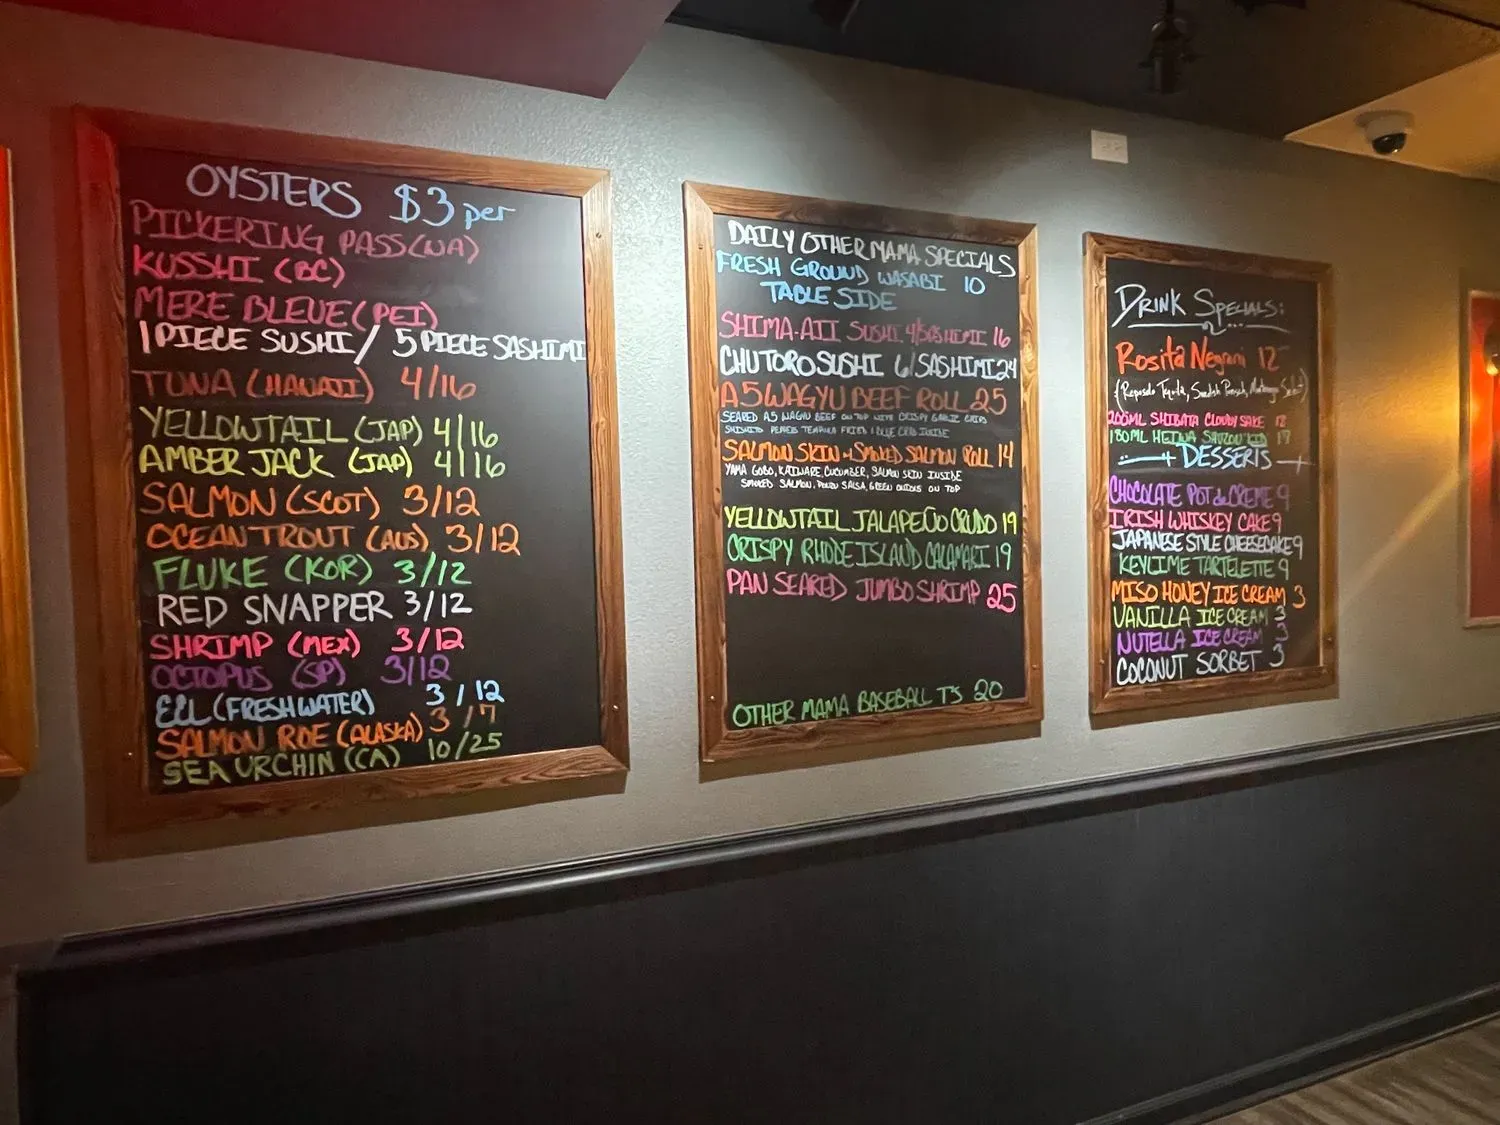 OYSTERS $3 per
PICKERING PASS (WA)
KUSSHI (BC)
MERE BLEUE (PEI)
1 PIECE SUSHI / 5 PIECE SASHIMI
TUNA (HAWAII) 4/16
YELLOWTAIL (JAP) 4/16
AMBER JACK (JAP) 4/16
SALMON (SCOT) 3/12
OCEAN TROUT (AUS) 3/12
FLUKE (KOR) 3/12
RED SNAPPER 3/12
SHRIMP (MEX) 3/12
OCTOPUS (SP) 3/12
EEL (FRESHWATER) 3/12
SALMON ROE (ALASKA) 3/7
SEA URCHIN (CA) 10/25
DAILY OTHER MAMA SPECIALS
FRESH GROUND WASABI 10
TABLE SIDE
SHIMA-AJI SUSHI 4/SASHIMI 16
CHUTORO SUSHI 6/SASHIMI 24
A5 WAGYU BEEF ROLL 25
SEARED A5 WAGYU BEEF ON TOP WITH CRISPY GARLIC CHIPS
SHISHITO PEPPER TEMPURA FRIED BLUE CRAB INSIDE
SALMON SKIN + SMOKED SALMON ROLL 14
YAMA GOBO, KAIWARE, CUCUMBER, SALMON SKIN INSIDE
SMOKED SALMON, PONZU SALSA, GREEN ONIONS ON TOP
YELLOWTAIL JALAPEÑO CRUDO 19
CRISPY RHODE ISLAND CALAMARI 19
PAN SEARED JUMBO SHRIMP 25
OTHER MAMA BASEBALL T'S 20
DRINK SPECIALS:
Rosita Negroni 12
(Reposado Tequila, Swedish Punsch,
200ML SHIBATA CLOUDY SAKE
180ML HEIWA
DESSERTS
CHOCOLATE POT de CREME 9
IRISH WHISKEY CAKE 9
JAPANESE STYLE CHEESECAKE 9
KEYLIME TARTELETTE 9
MISO HONEY ICE CREAM 3
VANILLA ICE CREAM 3
NUTELLA ICE CREAM 3
COCONUT SORBET 3